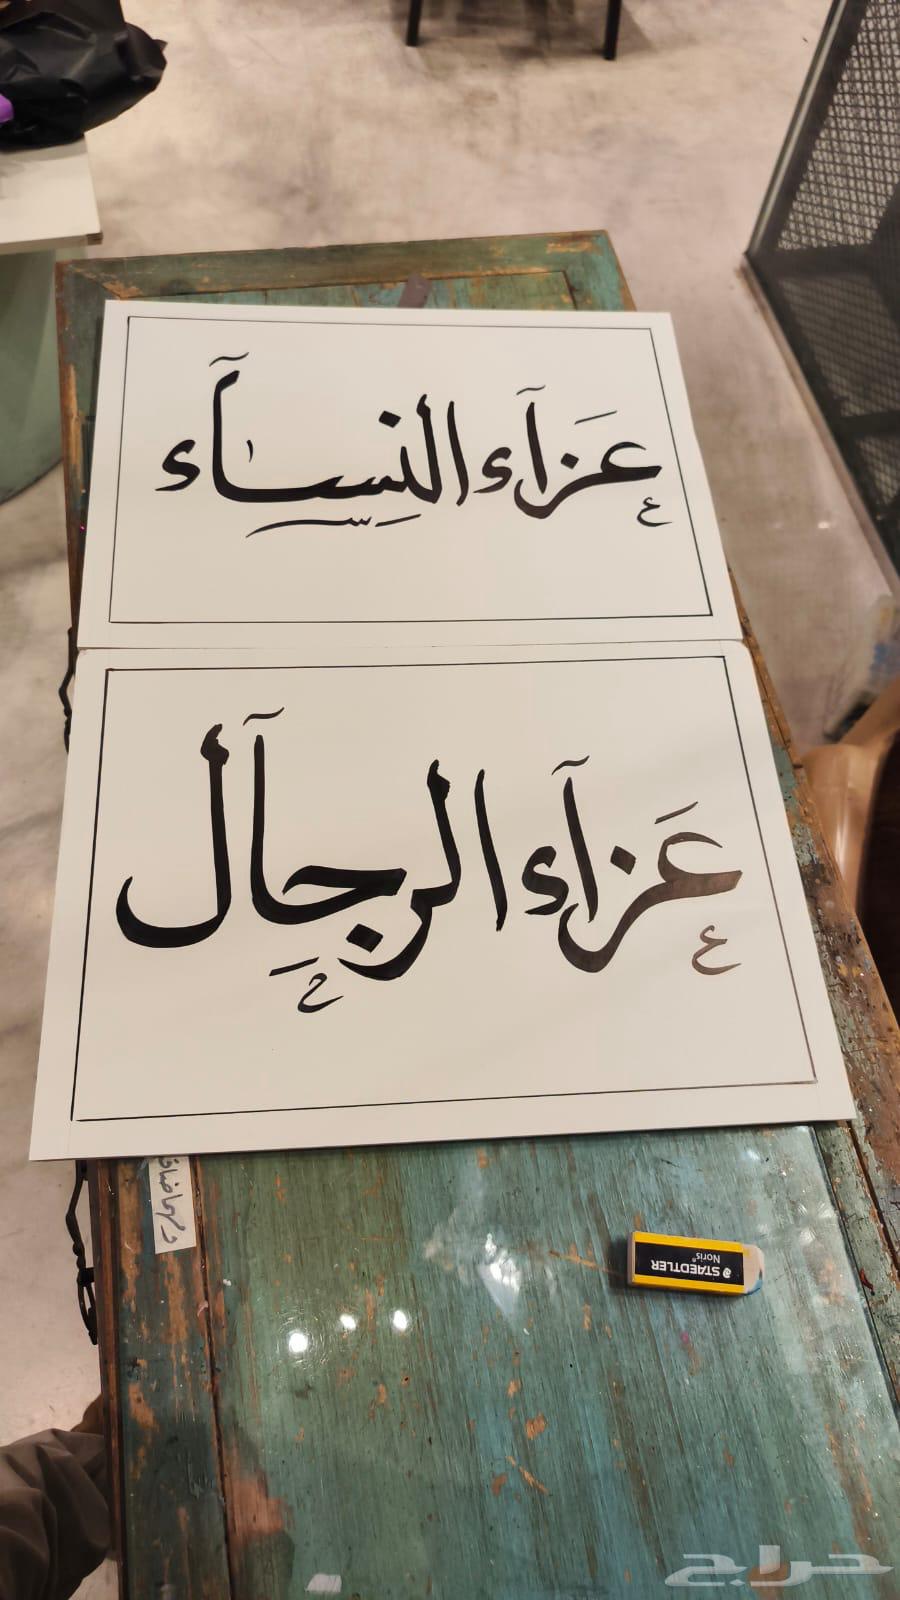 عَزآء النِسآء
عَزآء الرجِآل
STAEDTLER
Noris
حراج